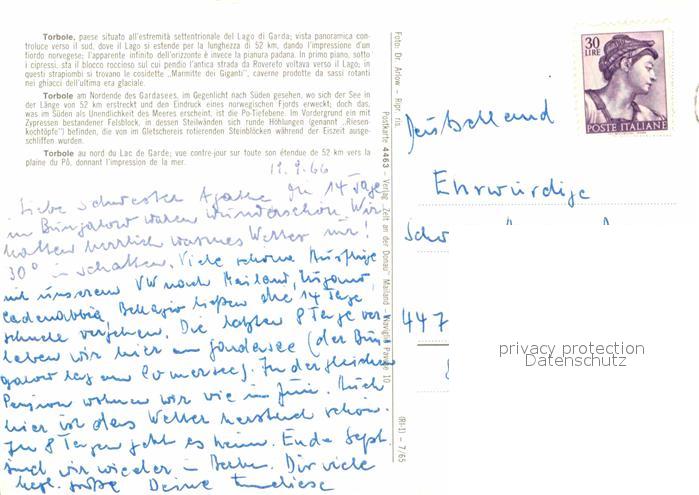 Torbole, paese situato all'estremità settentrionale del Lago di Garda; vista panoramica con-
troluce verso il sud, dove il Lago si estende per la lunghezza di 52 km, dando l'impressione d'un
fiordo norvegese; l'apparente infinito dell'orizzonte è invece la pianura padana. In primo piano, sotto
i cipressi, sta il blocco roccioso sul cui pendio l'antica strada da Rovereto voltava verso il Lago; in
questi strapiombi si trovano le cosidette „Marmitte dei Giganti", caverne prodotte da sassi rotanti
nei ghiacci dell'ultima era glaciale.
Torbole am Nordende des Gardasees, im Gegenlicht nach Süden gesehen, wo sich der See in
der Länge von 52 km erstreckt und den Eindruck eines norwegischen Fjords erweckt; doch das,
was im Süden als Unendlichkeit des Meeres erscheint, ist die Po-Tiefebene. Im Vordergrund ein mit
Zypressen bestandener Felsblock, in dessen Steilwänden sich runde Höhlungen (genannt „Riesen-
kochtöpfe") befinden, die von im Gletschereis rotierenden Steinblöcken während der Eiszeit ausge-
schliffen wurden.
Torbole au nord du Lac de Garde; vue contre-jour sur toute son étendue de 52 km vers la
plaine du Pô, donnant l'impression de la mer.
19.9.66
Liebe Schwester Agathe Die 14 Tage
im Bungalow waren wunderschön. Wir
hatten herrlich warmes Wetter
30° in Schatten. Viele schöne Ausflüge
mit unserem VW nach Mailand, Lugano,
Cadenabbia, Bellagio ließen die 14 Tage
schnell vergehen. Die letzten 8 Tage ver-
leben wir hier am Gardasee (der Bun-
galow lag am Comersee). In der gleichen
Pension wohnen wir wie im Juni. Auch
hier ist das Wetter herrlich schön.
In 8 Tagen geht es heim. Ende Sept.
sind wir wieder in Berlin. Dir viele
herzl. Grüße Deine Anneliese
Foto: Dr. Arlow – Ripr. ris.
Postkarte 4463 – Verlag „Zelt an der Donau" Mailand – Naviglio Pavese 10
(RI-1) – 7/65
30
LIRE
POSTE ITALIANE
Deutschland
Ehrwürdige
Schw
447
privacy protection
Datenschutz